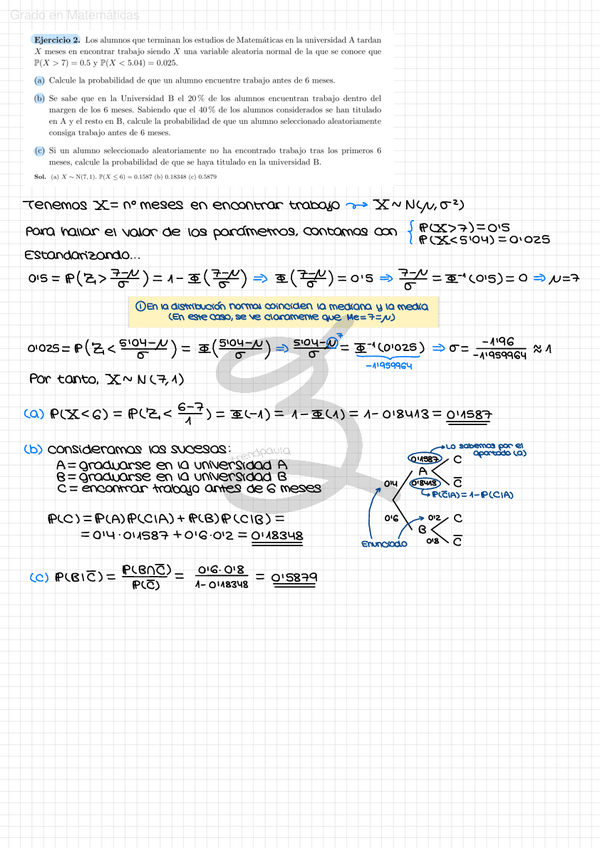 Grado en Matemáticas
Ejercicio 2. Los alumnos que terminan los estudios de Matemáticas en la universidad A tardan
X meses en encontrar trabajo siendo X una variable aleatoria normal de la que se conoce que
ℙ(X > 7) = 0.5 y ℙ(X < 5.04) = 0.025.
(a) Calcule la probabilidad de que un alumno encuentre trabajo antes de 6 meses.
(b) Se sabe que en la Universidad B el 20 % de los alumnos encuentran trabajo dentro del
margen de los 6 meses. Sabiendo que el 40 % de los alumnos considerados se han titulado
en A y el resto en B, calcule la probabilidad de que un alumno seleccionado aleatoriamente
consiga trabajo antes de 6 meses.
(c) Si un alumno seleccionado aleatoriamente no ha encontrado trabajo tras los primeros 6
meses, calcule la probabilidad de que se haya titulado en la universidad B.
Sol. (a) X ∼ N(7, 1). ℙ(X ≤ 6) = 0.1587 (b) 0.18348 (c) 0.5879
Tenemos X = nº meses en encontrar trabajo ⇝ X ∼ N(μ, σ²)
Para hallar el valor de los parámetros, contamos con { ℙ(X>7) = 0'5
ℙ(X<5'04) = 0'025
Estandarizando...
0'5 = ℙ(Z > (7-μ)/σ) = 1 - Φ((7-μ)/σ) ⇒ Φ((7-μ)/σ) = 0'5 ⇒ (7-μ)/σ = Φ⁻¹(0'5) = 0 ⇒ μ = 7
① En la distribución normal coinciden la mediana y la media
(En este caso, se ve claramente que Me = 7 = μ)
0'025 = ℙ(Z < (5'04-μ)/σ) = Φ((5'04-μ)/σ) ⇒ (5'04-μ)/σ = Φ⁻¹(0'025) ⇒ σ = -1'96/-1'959964 ≈ 1
7
-1'959964
Por tanto, X ∼ N(7,1)
(a) ℙ(X<6) = ℙ(Z < (6-7)/1) = Φ(-1) = 1 - Φ(1) = 1 - 0'8413 = 0'1587
(b) Consideramos los sucesos:
A = graduarse en la universidad A
B = graduarse en la universidad B
C = encontrar trabajo antes de 6 meses
ℙ(C) = ℙ(A)ℙ(C|A) + ℙ(B)ℙ(C|B) =
= 0'4·0'1587 + 0'6·0'2 = 0'18348
Lo sabemos por el
apartado (a)
0'1587 C
0'4 A
0'8413 C̅
ℙ(C̅|A) = 1 - ℙ(C|A)
0'6 0'2 C
B
Enunciado 0'8 C̅
(c) ℙ(B|C̅) = ℙ(B∩C̅)/ℙ(C̅) = 0'6·0'8/1-0'18348 = 0'5879